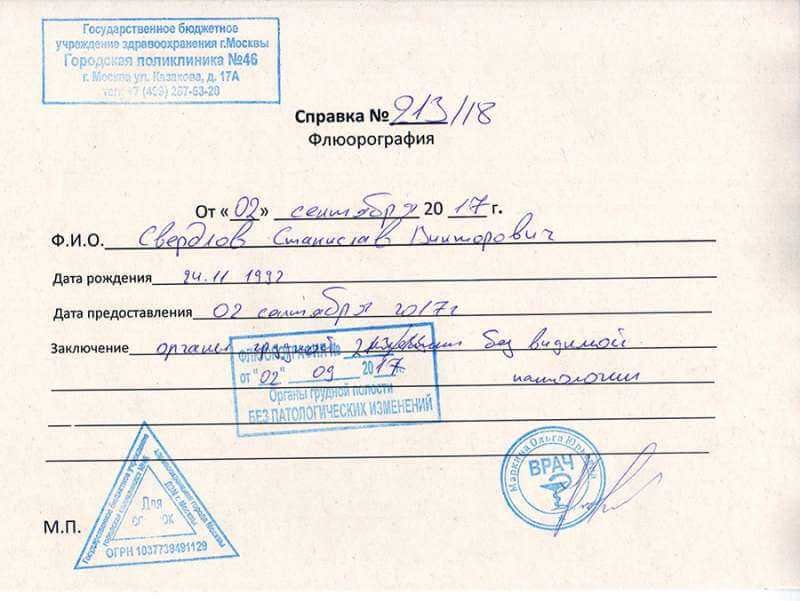 Государственное бюджетное
учреждение здравоохранения г.Москвы
Городская поликлиника №46
г. Москва ул. Казакова, д. 17А
тел: +7 (499) 267-63-20
Справка № 213/18
Флюорография
От «02» сентября 2017 г.
Ф.И.О. Свердлов Станислав Викторович
Дата рождения 24.11 1992
Дата предоставления 02 сентября 2017г
Заключение органы грудной без видимой
патологии
ФЛЮОРОГРАФИЯ № 213/18
от "02" 09 2017.
Органы грудной полости
БЕЗ ПАТОЛОГИЧЕСКИХ ИЗМЕНЕНИЙ
Маркина Ольга Юрьевна
ВРАЧ
Государственное бюджетное учреждение
здравоохранения города Москвы
городская поликлиника №46
ДЗМ г. Москвы
Для
ОГРН 1037739491129
М.П.